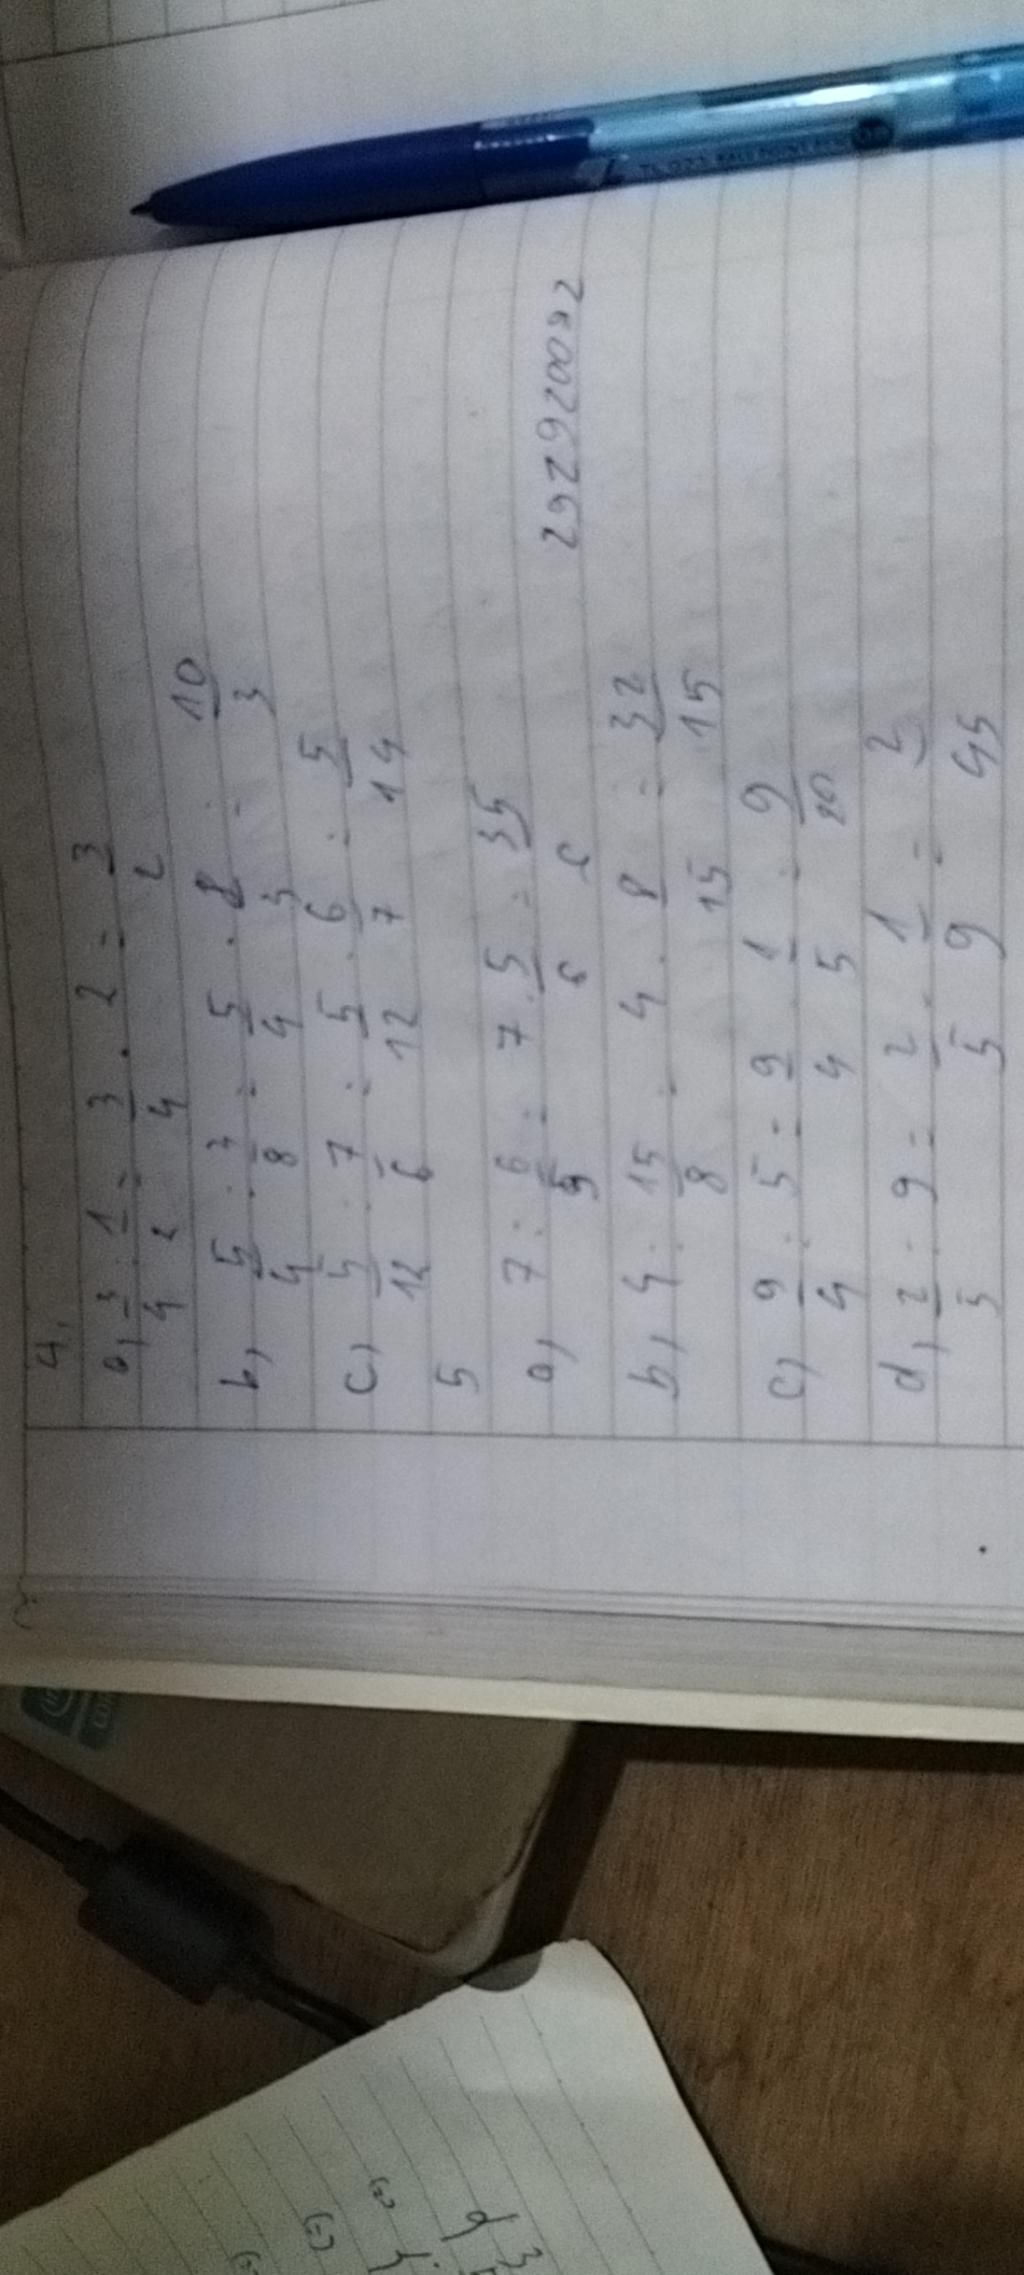 4,
a, 3/4 : 1/2 = 3/4 . 2 = 3/2
b, 5/4 : 3/8 = 5/4 . 8/3 = 10/3
c, 5/12 : 7/6 = 5/12 . 6/7 = 5/14
5
a, 7 : 6/5 = 7 . 5/6 = 35/6
b, 4 : 15/8 = 4 . 8/15 = 32/15
c, 9/4 : 5 = 9/4 1/5 = 9/20
d, 2/5 : 9 = 2/5 . 1/9 = 2/45